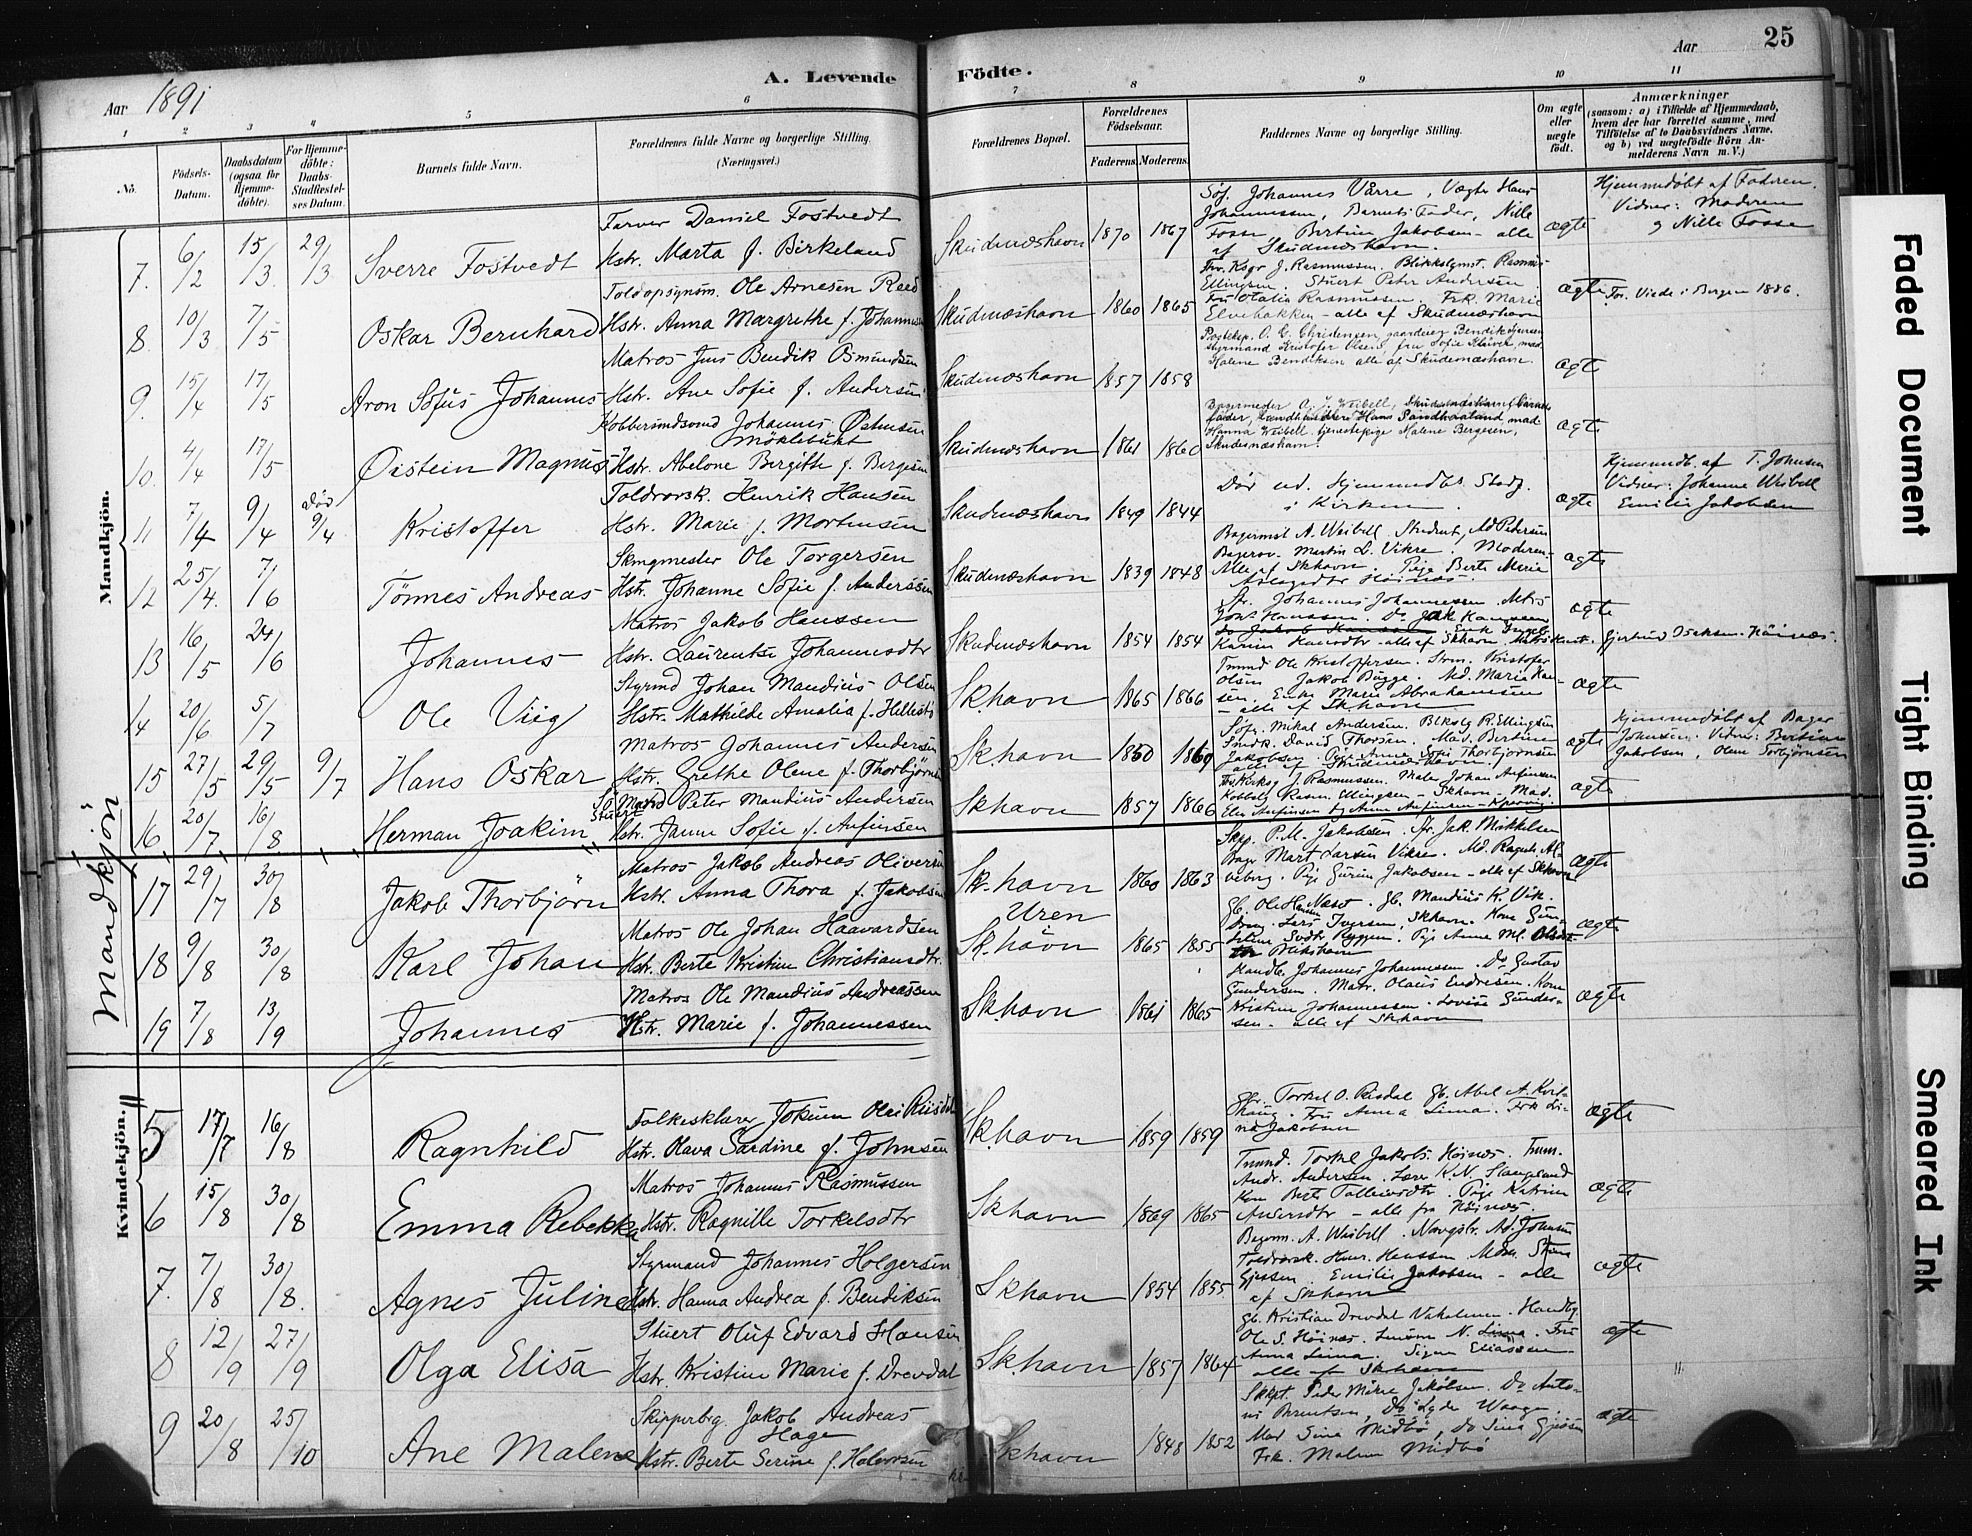 Aar 1891
A. Levende Födte.
Aar 25
1 2 3 4 5 6 7 8 9 10 11
No.
Födsels-Datum.
Daabsdatum (ogsaa for Hjemme-döbte).
For Hjemme-döbte: Daabs-Stadfæstel-ses Datum.
Barnets fulde Navn.
Forældrenes fulde Navne og borgerlige Stilling. (Næringsvei.)
Forældrenes Bopæl.
Forældrenes Födselsaar.
Faderens. Moderens.
Faddernes Navne og borgerlige Stilling.
Om ægte eller uægte födt.
Anmærkninger
(saasom: a) i Tilfælde af Hjemmedaab, hvem der har forrettet samme, med Tilföielse af to Daabsvidners Navne, og b) ved uægtefödte Börn An-melderens Navn m. V.)
Mandkjön.
7. 6/2 15/3 29/3 Sverre Fostvedt
Farver Daniel Fostvedt
Hstr. Marta f. Birkeland
Skudesneshavn 1870 1867
Söf. Johannes Vårre, Vægter Hans
Johannessen, Barnets Fader, Nille
Fosse, Bertine Jakobsen - alle
af Skudesneshavn.
ægte
Hjemmedöbt af Faderen.
Vidner: Moderen
og Nille Fosse
8. 10/3 7/5 Oskar Bernhard
Toldopsynsm. Ole Arnesen Reed
Hstr. Anna Margrethe f. Johannesen
Skudesneshavn 1860 1865
J. Rasmussen. Blikkslgmst. Rasmus
Ellingsen. Stuert Peter Andersen
Fru Otalia Rasmussen. Frk. Marie
Elvebakken - alle af Skudesneshavn
ægte
For. Viede i Bergen 1886.
9. 15/4 17/5 Aron Sofus Johannes
Matros Jens Bendik Osmundsen
Hstr. Ane Sofie f. Andersen
Skudesneshavn 1857 1858
O. C. Christensen, gaardeier Bendik
styrmand Kristofer Olsen, fru Sofie
Malene Bendiksen alle af Skudesnæshavn.
ægte
10. 4/4 17/5 Øistein Magnus
Johannes Östensen
Mökleb��kt
Hstr. Abelone Bergitte f. Bergesen
Skudesneshavn 1861 1860
Bagermeder A. J. Weibell, Skudesneshavn, barnets
fader, Landhandler Hans Sandhaaland, mad.
Hanna Weibell tjenestepige Malene Bergesen,
Skudesnæshavn.
ægte
11. 7/4 9/4 död 9/4 Kristoffer
Toldrorsk. Henrik Hansen
Hstr. Marie f. Mortensen
Skudesneshavn 1849 1844
Död ud. Hjemmedbs Stadf.
i Kirken.
ægte
Hjemmedb. af T. Johnsen
Vidner: Johanne Weibell
Emilie Jakobsen
12 25/4. 7/6 Tönnes Andreas
Ole Torgersen
Hstr. Johanne Sofie f. Anderssen
Skudesneshavn 1839 1848
Bagermst A. Weibell. Student Ad Pedersen
Martin L. Vikre. Moderen -
Alle af Skhavn. Pige Berte Marie
ægte
13 16/5 24/6 Johannes
Matros Jakob Hanssen
Hstr. Laurentse Johannesdtr
Skudesneshavn 1854 1854
Johannes Johannessen. Mtrs
ægte
14 20/6 5/7 Ole Viig
Styrmd Johan Mandius Olsen
Hstr. Mathilde Amalia f. Hellestö
Skhavn 1865 1866
Ole Kristoffersen. Strm. Kristofer
Olsen Jakob Bügge. Md. Maria Han-
sen. Enke Marie Abrahamsen
- alle af Skhavn
ægte
15 27/5 29/5 9/7 Hans Oskar
Matros Johannes Andersen
Hstr. Grethe Olene f. Thorbjörnsen
Skhavn 1860 1869
Söf. Mikal Andersen. Blkslg R. Ellingsen
Smdk. David Thorsen. Mad. Bertine
Jakobsen. Pige Anne Sofie Thorbjörnsen
alle af Skudesneshavn.
ægte
Hjemmedöbt af Bager
Johnsen. Vidner: Bertine
Jakobsen, Olene Torbjörnsen
16. 20/7 16/8 Herman Joakim
Stuert Peter Mandius Andersen
Hstr. Janne Sofie f. Anfinsen
Skhavn 1857 1866
J. Rasmussen. Maler Johan Anfinsen
Rasm. Ellingsen - Skhavn - Mad.
ægte
Mandkjön
17 29/7 30/8 Jakob Thorbjörn
Matros Jakob Andreas Oliversen
Hstr. Anna Thora f. Jakobsen
Sk.havn 1860 1863
Skpp. P. M. Jakobsen. Str. Jak. Mikkelsen
Bager Mart Larsen Vikre. Md. Ragnh. Al-
veberg. Pige Gurine Jakobsen - alle af Skhavn
ægte
18 9/8 30/8 Karl Johan
Matros Ole Johan Haavardsen
Hstr. Berte Kristine Christiansdtr.
Uren
Sk.havn 1865 1855
ægte
19 7/8 13/9 Johannes
Matros Ole Mandius Andreassen
Hstr. Marie f. Johannessen
Sk.havn 1861 1865
Handlb. Johannes Johannessen. Do Gustav
Gundersen. Matr. Olaus Endresen. Kone
Kristine Johannessen. Lovise Gunder-
sen - alle af Skhavn
ægte
Kvindekjön.
5 17/7 16/8 Ragnhild
Folkesklærer Jokum Olai Riisdal
Hstr. Olava Sardine f. Johnsen
Sk.havn 1859 1859
Gbr. Torkel O. Risdal Gb. Abel A. Kvit-
haug. Fru Anna Linna. Frk Li-
na Jakobsen
ægte
6 15/8 30/8 Emma Rebekka
Matros Johannes Rasmussen
Hstr. Ragnille Torkelsdtr
Skhavn 1869 1865
Tmmd. Torkel Jakobs. Höines. Tmm.
Andr. Andersen. Lærer K. N. Stangeland
Kone Berte Tallevsdtr. Pige Katrine
Andersdtr - alle fra Höines.
ægte
7. 7/8 30/8. Agnes Juline
Styrmand Johannes Holgersen
Hstr. Hanna Andrea f. Bendiksen
Skhavn 1854 1855
Bagerm. A. Weibell. Ad. Johnsen
Toldrorsk. Henr. Hanssen. Mdm. Stina
Gjessen. Emilie Jakobsen - alle
af Skhavn
ægte
8 12/9 27/9 Olga Elisa
Stuert Oluf Edvard Hansen
Hstr. Kristine Marie f. Drevdal
Skhavn 1857 1864
Gb. Kristian Drevdal Vakelmen. Handbg
Ole S. Höines. N. Linna. Fru
Anna Linna. Signe Eliassen
alle af Skhavn
ægte
9 20/8 25/10 Ane Malene
Skipperbrg. Jakob Andreas
Hage
Hstr. Berte Serine f. Halvorsen
Skhavn 1848 1852
Skkpt. Peder Mikre Jakobsen. Do Anto-
ni Berentsen, Do Lyder Waage.
Mad Sina Midbö, Do Sina Gjesen
Frk. Malene Midbö
ægte
Faded Document
Tight Binding
Smeared Ink